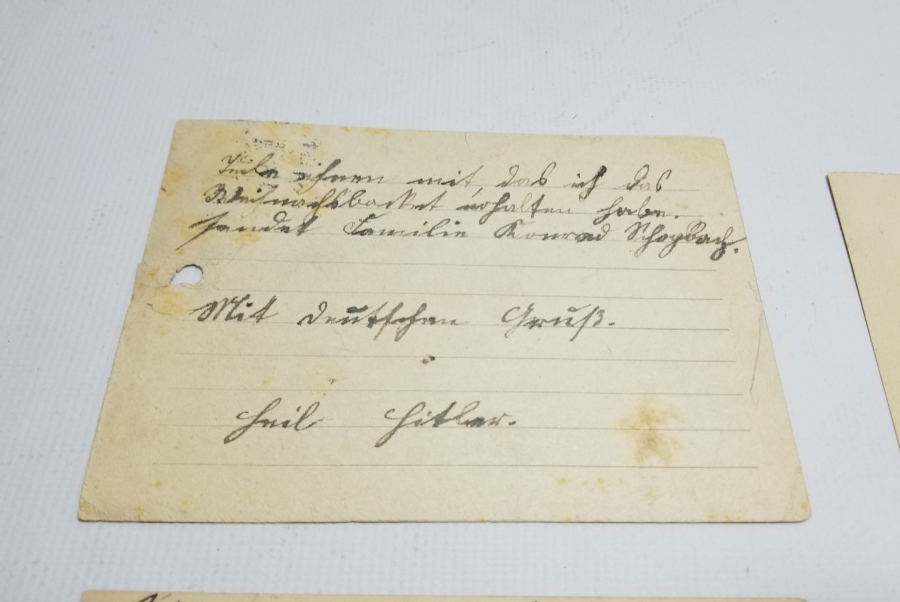 Teile ihnen mit, das ich das
Weihnachsbacket erhalten habe.
sendet Familie Konrad
Mit deutschen Gruß.
Heil Hitler.